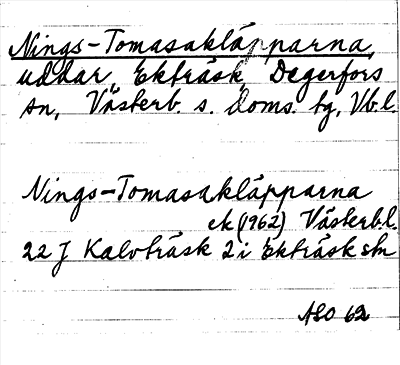 Nings-Tomasakläpparna,
uddar, Ekträsk, Degerfors
sn, Västerb. s. doms. tg, Vb.l.
Nings-Tomasakläpparna
ek (1962) Västerb.l.
22 J Kalvträsk 2 i Ekträsk sten
ASO 62